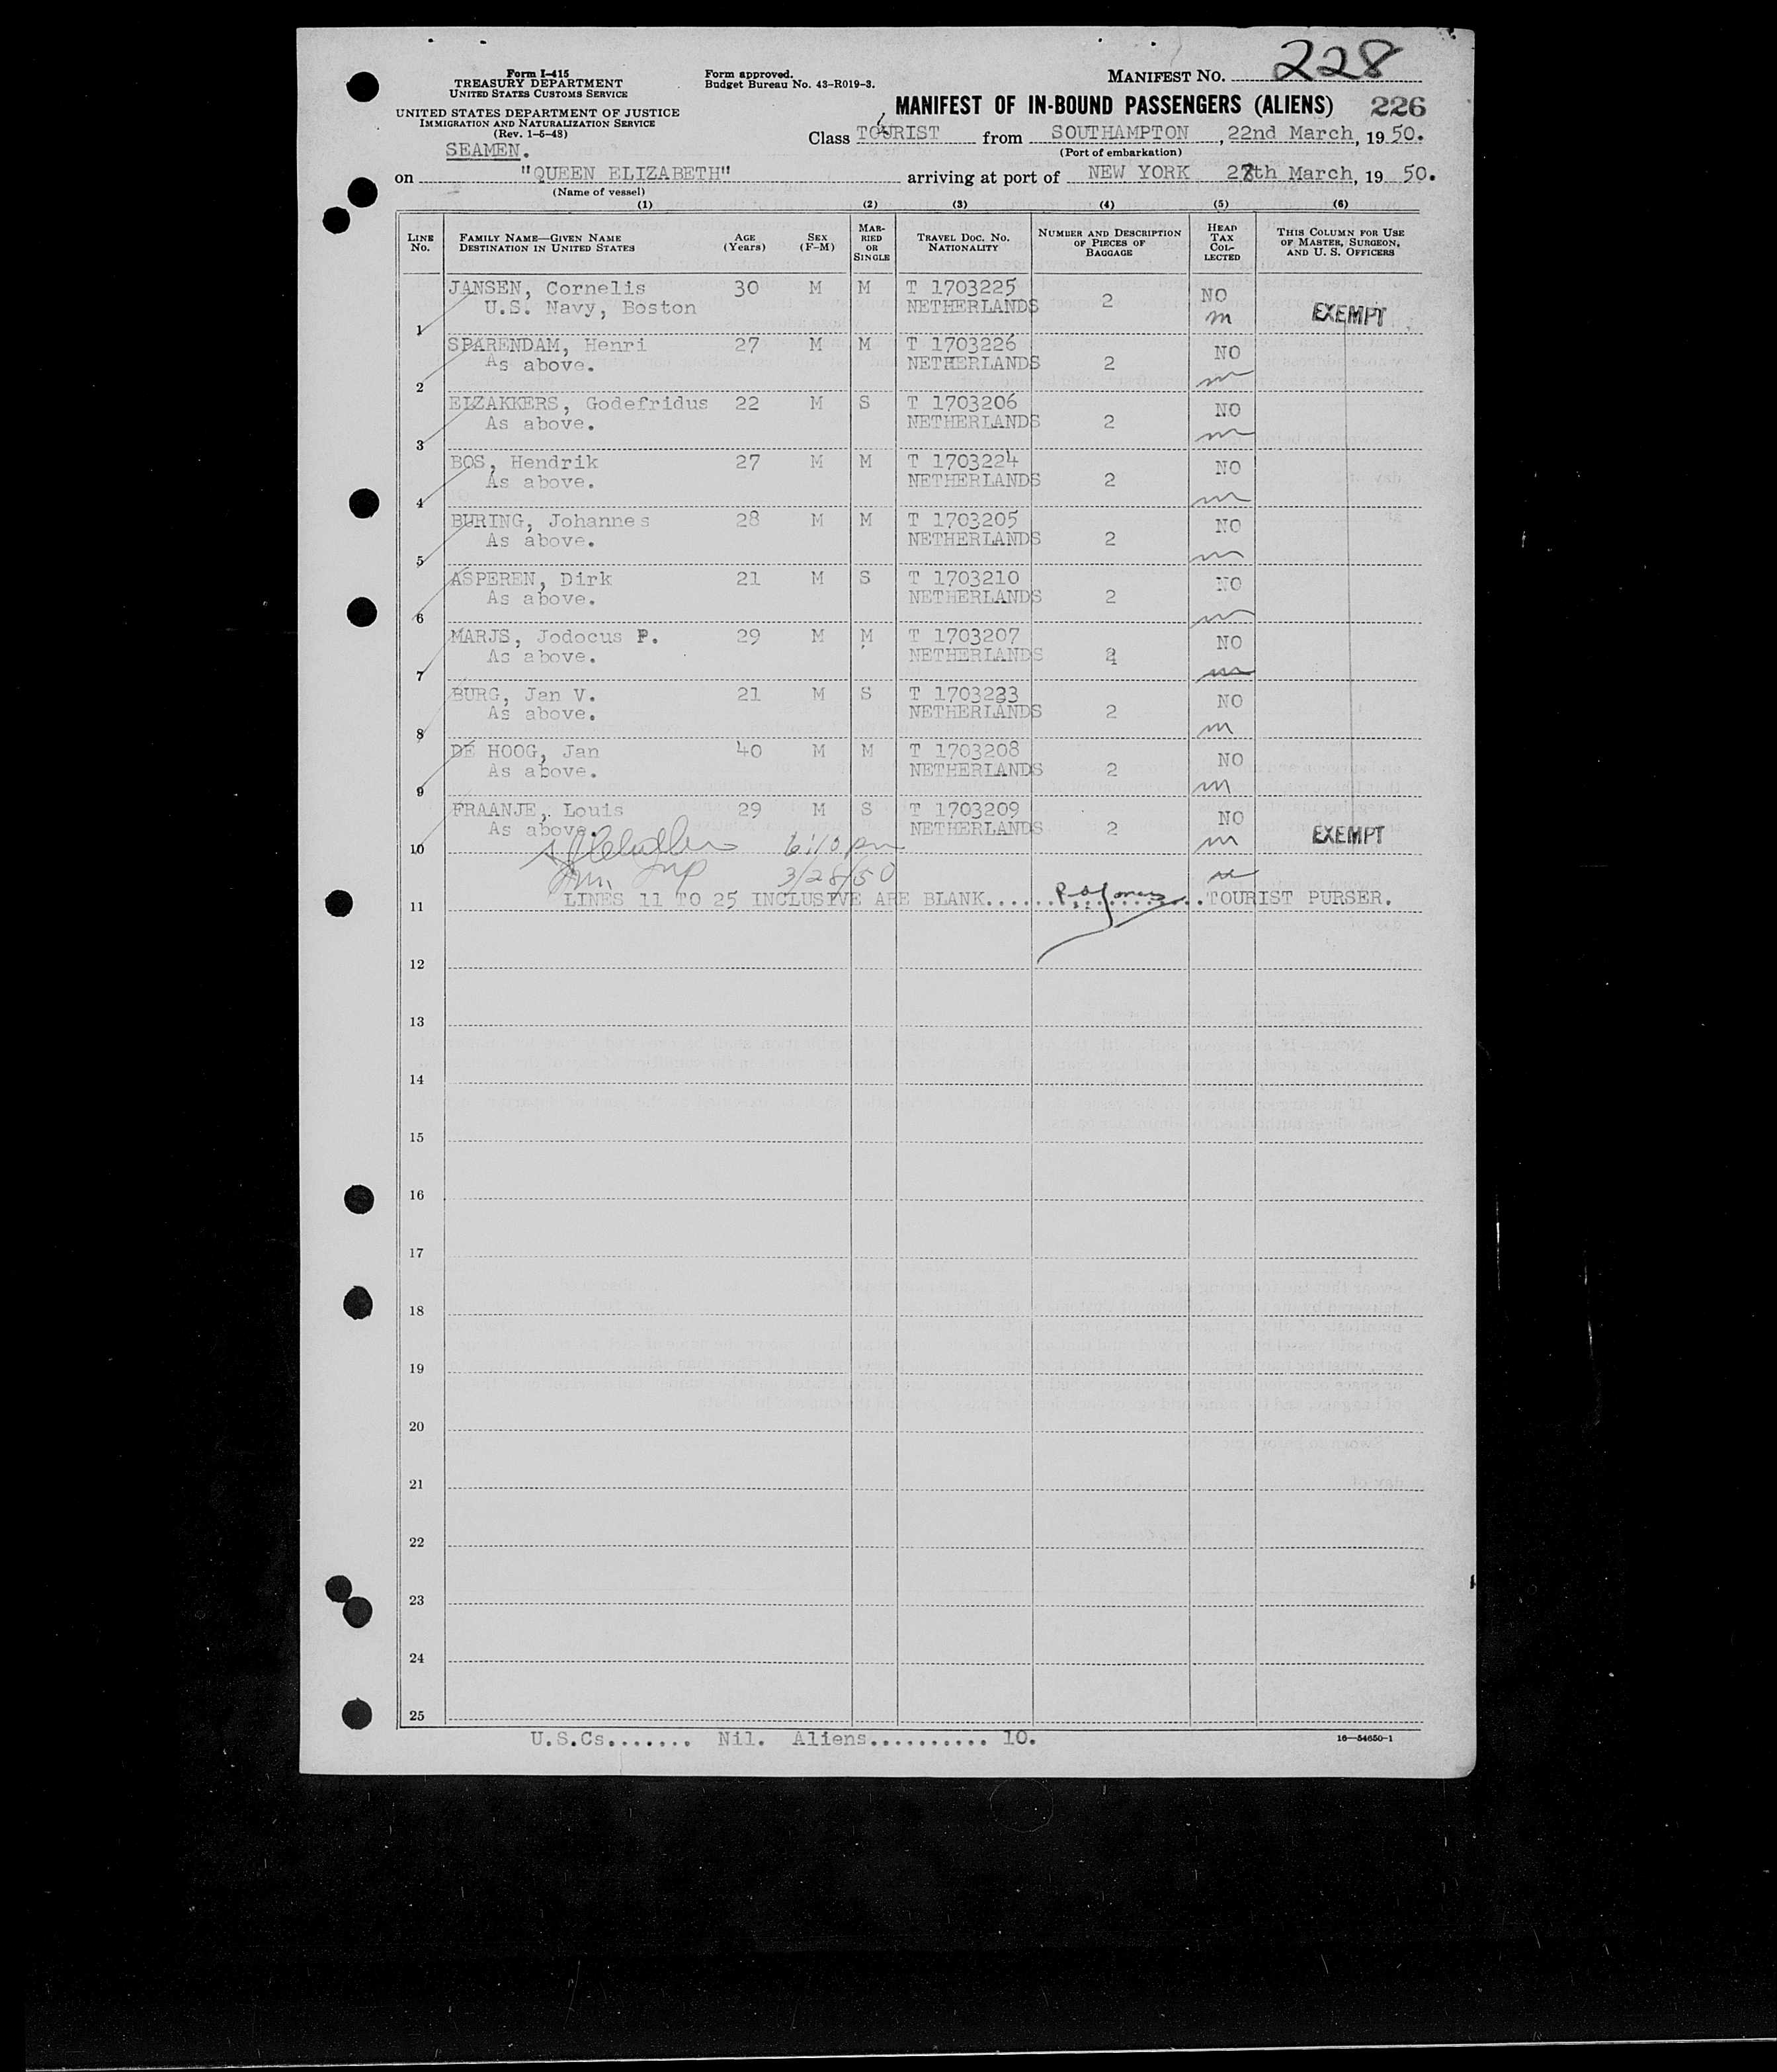 Form I-415
TREASURY DEPARTMENT
UNITED STATES CUSTOMS SERVICE
UNITED STATES DEPARTMENT OF JUSTICE
IMMIGRATION AND NATURALIZATION SERVICE
(Rev. 1-5-48)
SEAMEN.
Form approved.
Budget Bureau No. 43-R019-3.
MANIFEST NO. 228
MANIFEST OF IN-BOUND PASSENGERS (ALIENS) 226
Class TOURIST from SOUTHAMPTON, 22nd March, 1950.
(Port of embarkation)
on "QUEEN ELIZABETH" arriving at port of NEW YORK 28th March, 1950.
(Name of vessel)
(1) (2) (3) (4) (5) (6)
LINE NO. FAMILY NAME—GIVEN NAME DESTINATION IN UNITED STATES AGE (Years) SEX (F-M) MARRIED OR SINGLE TRAVEL DOC. NO. NATIONALITY NUMBER AND DESCRIPTION OF PIECES OF BAGGAGE HEAD TAX COLLECTED THIS COLUMN FOR USE OF MASTER, SURGEON, AND U. S. OFFICERS
JANSEN, Cornelis 30 M M T 1703225 NO
1 U.S. Navy, Boston NETHERLANDS 2 EXEMPT
SPARENDAM, Henri 27 M M T 1703226 NO
2 As above. NETHERLANDS 2
ELZAKKERS, Godefridus 22 M S T 1703206 NO
3 As above. NETHERLANDS 2
BOS, Hendrik 27 M M T 1703224 NO
4 As above. NETHERLANDS 2
BURING, Johannes 28 M M T 1703205 NO
5 As above. NETHERLANDS 2
ASPEREN, Dirk 21 M S T 1703210 NO
6 As above. NETHERLANDS 2
MARJS, Jodocus P. 29 M M T 1703207 NO
7 As above. NETHERLANDS 2
BURG, Jan V. 21 M S T 1703223 NO
8 As above. NETHERLANDS 2
DE HOOG, Jan 40 M M T 1703208 NO
9 As above. NETHERLANDS 2
FRAANJE, Louis 29 M S T 1703209 NO
10 As above. NETHERLANDS 2 EXEMPT
6:10 pm
Imm Insp 3/28/50
11 LINES 11 TO 25 INCLUSIVE ARE BLANK. TOURIST PURSER.
12
13
14
15
16
17
18
19
20
21
22
23
24
25
U.S.Cs....... Nil. Aliens.......... 10.
16—54650-1